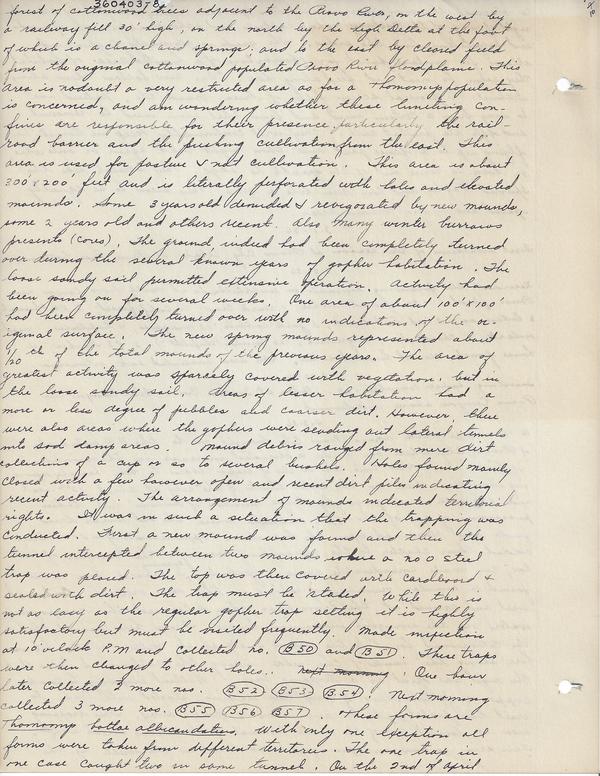 36040378
forest of cottonwood trees adjacent to the Provo River, on the west by
a railway fill 30' high, on the north by the high Delta at the foot
of which is a chanel and springs, and to the east by cleared field
from the original cottonwood populated Provo River floodplain. This
area is nodoubt a very restricted area as far a Thomomys population
is concerned, and am wondering whether these limiting con-
fines are responsible for their presence, particularly the rail-
road barrier and the pushing cultivation from the east. This
area is used for pasture & not cultivation. This area is about
300' x 200' feet and is literally perforated with holes and elevated
mounds. Some 3 years old denuded & revegetated by new mounds,
some 2 years old and others recent. Also many winter burrows
presents (cores). The ground, indeed had been completely turned
over during the several known years of gopher habitation. The
loose sandy soil permitted extensive operation. Activity had
been going on for several weeks. One area of about 100' x 100'
had been completely turned over with no indications of the or-
iginal surface. The new spring mounds represented about
1/20 th of the total mounds of the previous years. The area of
greatest activity was sparcely covered with vegetation, but in
the loose sandy soil. Areas of lesser habitation had a
more or less degree of pebbles and coarser dirt. However, there
were also areas where the gophers were sending out lateral tunnels
into sod damp areas. Mound debris ranged from mere dirt
collections of a cup or so to several bushels. Holes found mainly
closed with a few however open and recent dirt piles indicating
recent activity. The arrangement of mounds indicated territorial
rights. It was in such a situation that the trapping was
conducted. First a new mound was found and then the
tunnel intercepted between two mounds where a no 0 steel
trap was placed. The top was then covered with cardboard &
sealed with dirt. The trap must be staked. While this is
not as easy as the regular gopher trap setting it is highly
satisfactory but must be visited frequently. Made inspection
at 10 o'clock P.M and collected no. B50 and B51. These traps
were then changed to other holes. Next morning. One hour
later collected 3 more nos. B52 B53 B54. Next morning
collected 3 more nos. B55 B56 B57. These forms are
Thomomys bottae albicaudatus. With only one exception all
forms were taken from different territories. The one trap in
one case caught two in same tunnel. On the 2nd of April